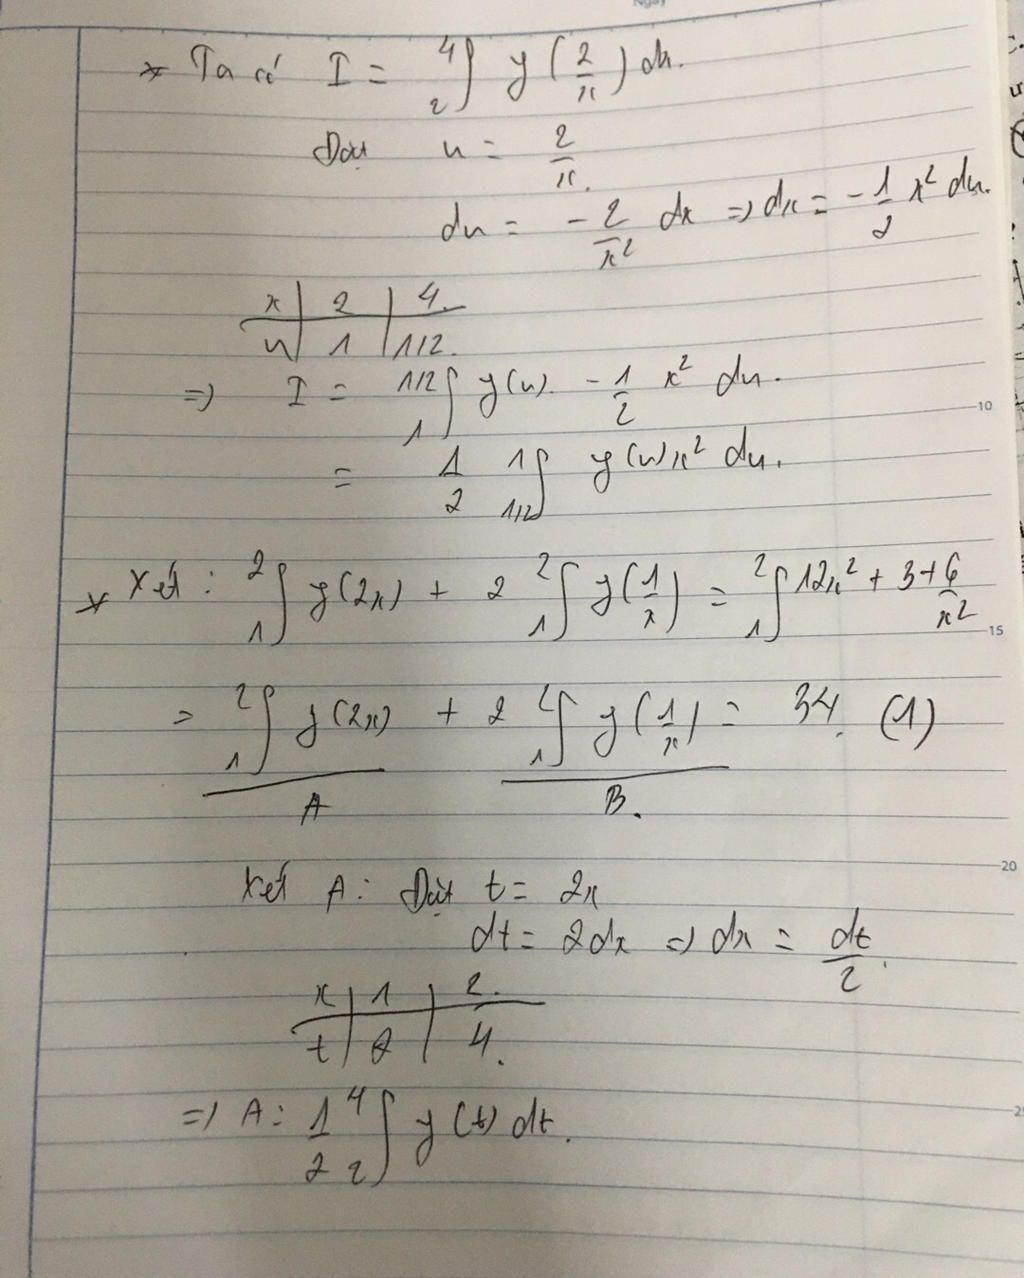 * Ta có I = ₂⁴∫ y(2/x) dx.
Đặt u = 2/x.
du = -2/x² dx => dx = -1/2 x² du.
x | 2 | 4.
u | 1 | 1/2.
=> I = ₁^1/2∫ y(u). -1/2 x² du.
= 1/2 ₁/₂¹∫ y(u)x² du.
10
* Xét: ₁²∫ y(2x) + 2 ₁²∫ y(1/x) = ₁²∫ 12x² + 3 + 6/x²
15
= ₁²∫ y(2x) + 2 ₁²∫ y(1/x) = 34. (1)
A B.
20
Xét A: Đặt t = 2x
dt = 2dx => dx = dt/2.
x | 1 | 2.
t | 2 | 4.
=> A: 1/2 ₂⁴∫ y(t) dt.